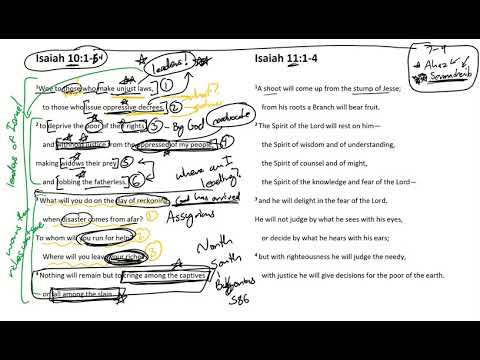 Isaiah 10:1-4
leaders!
1Woe to those who make unjust laws, 1
to those who issue oppressive decrees, 2
2to deprive the poor of their rights 3 - By God
advocate
and withhold justice from the oppressed of my people, 4
making widows their prey 5
and robbing the fatherless. 6
where am I
leading?
3What will you do on the day of reckoning, God has arrived
when disaster comes from afar? 1 Assyrians
To whom will you run for help? 2
Where will you leave your riches? 3
North
South
4Nothing will remain but to cringe among the captives
or fall among the slain.
Babylonians
586
leaders of Israel
Isaiah 11:1-4
7-9
Ahaz
Sennacherib
1A shoot will come up from the stump of Jesse;
from his roots a Branch will bear fruit.
2The Spirit of the Lord will rest on him—
the Spirit of wisdom and of understanding,
the Spirit of counsel and of might,
the Spirit of the knowledge and fear of the Lord—
3and he will delight in the fear of the Lord.
He will not judge by what he sees with his eyes,
or decide by what he hears with his ears;
4but with righteousness he will judge the needy,
with justice he will give decisions for the poor of the earth.